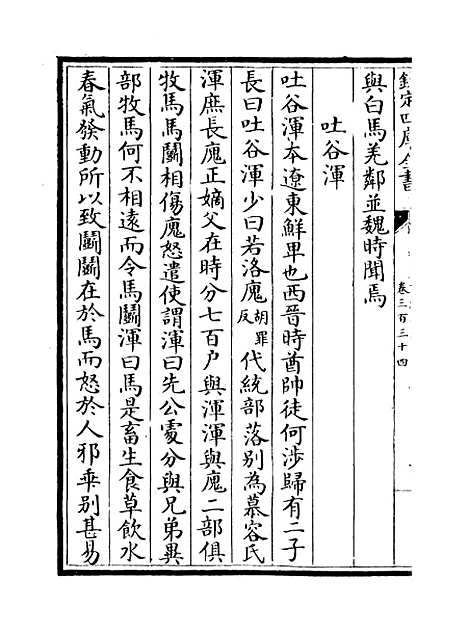 欽定四庫全書
卷三百三十四
與白馬羌鄰並魏時聞焉
吐谷渾
吐谷渾本遼東鮮卑也西晋時酋帥徒何涉歸有二子
長曰吐谷渾少曰若洛廆胡罪反代統部落别為慕容氏
渾庶長廆正嫡父在時分七百户與渾渾與廆二部俱
牧馬馬鬭相傷廆怒遣使謂渾曰先公處分與兄弟異
部牧馬何不相逺而令馬鬭渾曰馬是畜生食草飲水
春氣發動所以致鬭鬭在於馬而怒於人邪乖别甚易